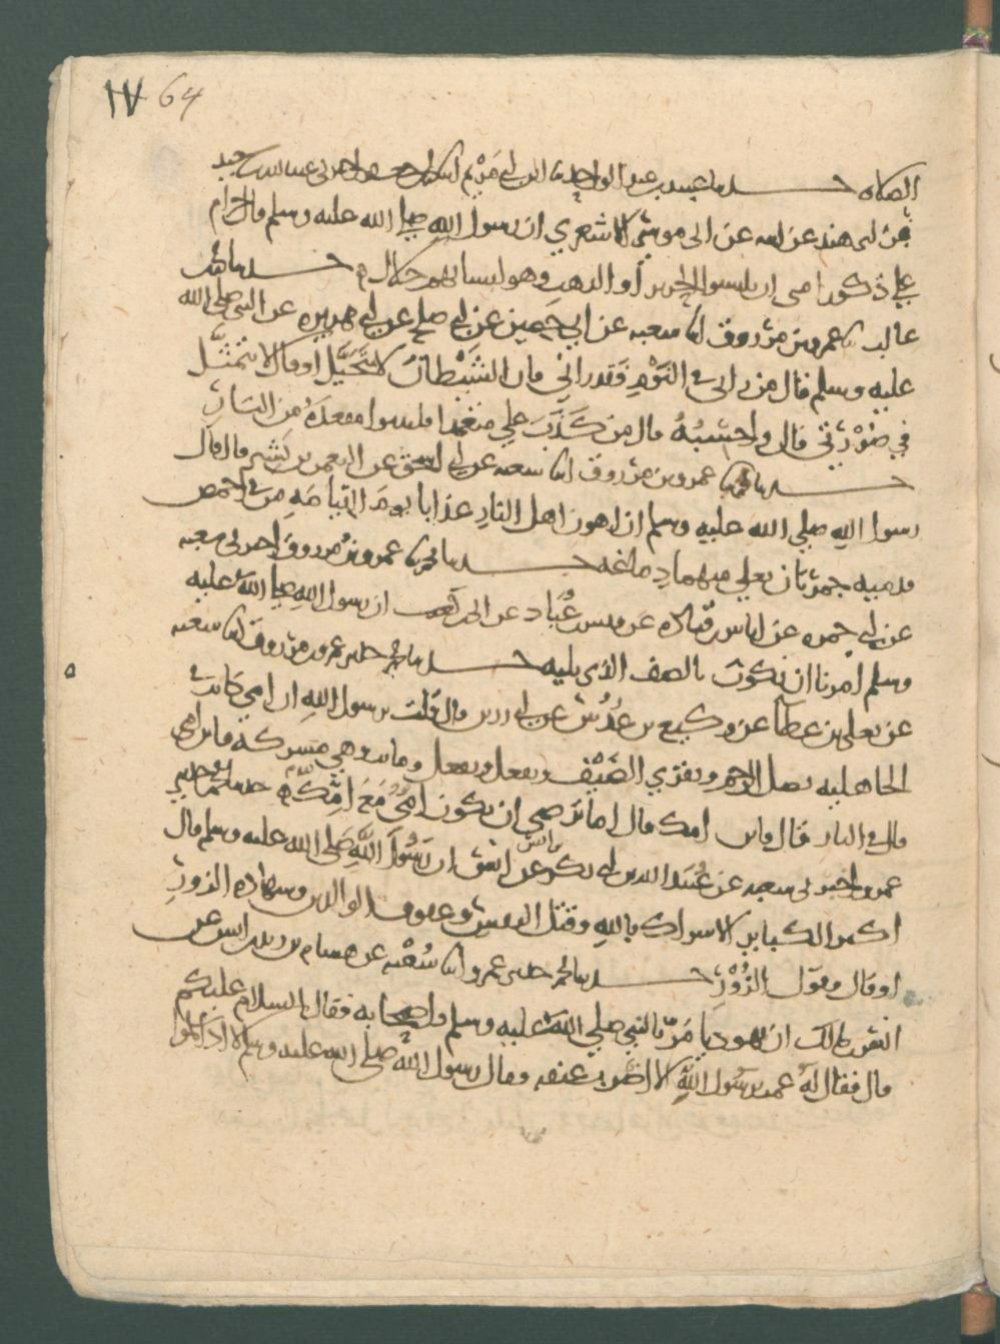 ١٧ 64
الصلاه حدثنا عبيد بن عبد الواحد نا ابن ابي مريم انا
بن ابي هند عن ابيه عن ابي موسى الاشعري ان رسول الله صلى الله عليه وسلم قال حرام
على ذكور امتي ان يلبسوا الحرير او الذهب وهو لنسائهم حلال حدثنا محمد بن
غالب نا عمرو بن مرزوق انا شعبه عن ابي حصين عن ابي صالح عن ابي هريره عن النبي صلى الله
عليه وسلم قال من راني في النوم فقد راني فان الشيطان لا يتخيل او قال لا يتمثل
في صورتي قال واحسبه قال من كذب علي متعمدا فليتبوا مقعده من النار
حدثنا محمد نا عمرو بن مرزوق انا شعبه عن ابي اسحق عن النعمن بن بشير قال قال
رسول الله صلى الله عليه وسلم ان اهون اهل النار عذابا يوم القيامه من في اخمص
قدميه جمرتان يغلي منهما دماغه حدثنا محمد نا عمرو بن مرزوق اخبرني شعبه
عن ابي جمره عن اياس بن قتاده عن قيس بن عباد عن ابي بن كعب ان رسول الله صلى الله عليه
وسلم امرنا ان نكون بالصف الذي يليه حدثنا محمد حدثني عمرو بن مرزوق انا شعبه
عن يعلى بن عطا عن وكيع بن عدس عن ابي رزين قال قلت يرسول الله ان امي كانت في
الجاهليه تصل الرحم وتقري الضيف وتفعل وتفعل وماتت وهي مشركه فاين امي
قال في النار قال فاين امك قال اما ترضى ان تكون امك مع امي حدثنا محمد حدثني
عمرو اخبرني شعبه عن عبيد الله بن ابي بكر عن انس ان رسول الله صلى الله عليه وسلم قال
اكبر الكبائر الاشراك بالله وقتل النفس وعقوق الوالدين وشهاده الزور
او قال وقول الزور حدثنا محمد حدثني عمرو انا شعبه عن هشام بن زيد بن انس عن
انس بن مالك ان يهوديا مر بالنبي صلى الله عليه وسلم واصحابه فقال السلام عليكم
قال فقال له عمر يرسول الله الا اضرب عنقه وقال رسول الله صلى الله عليه وسلم لا اذا